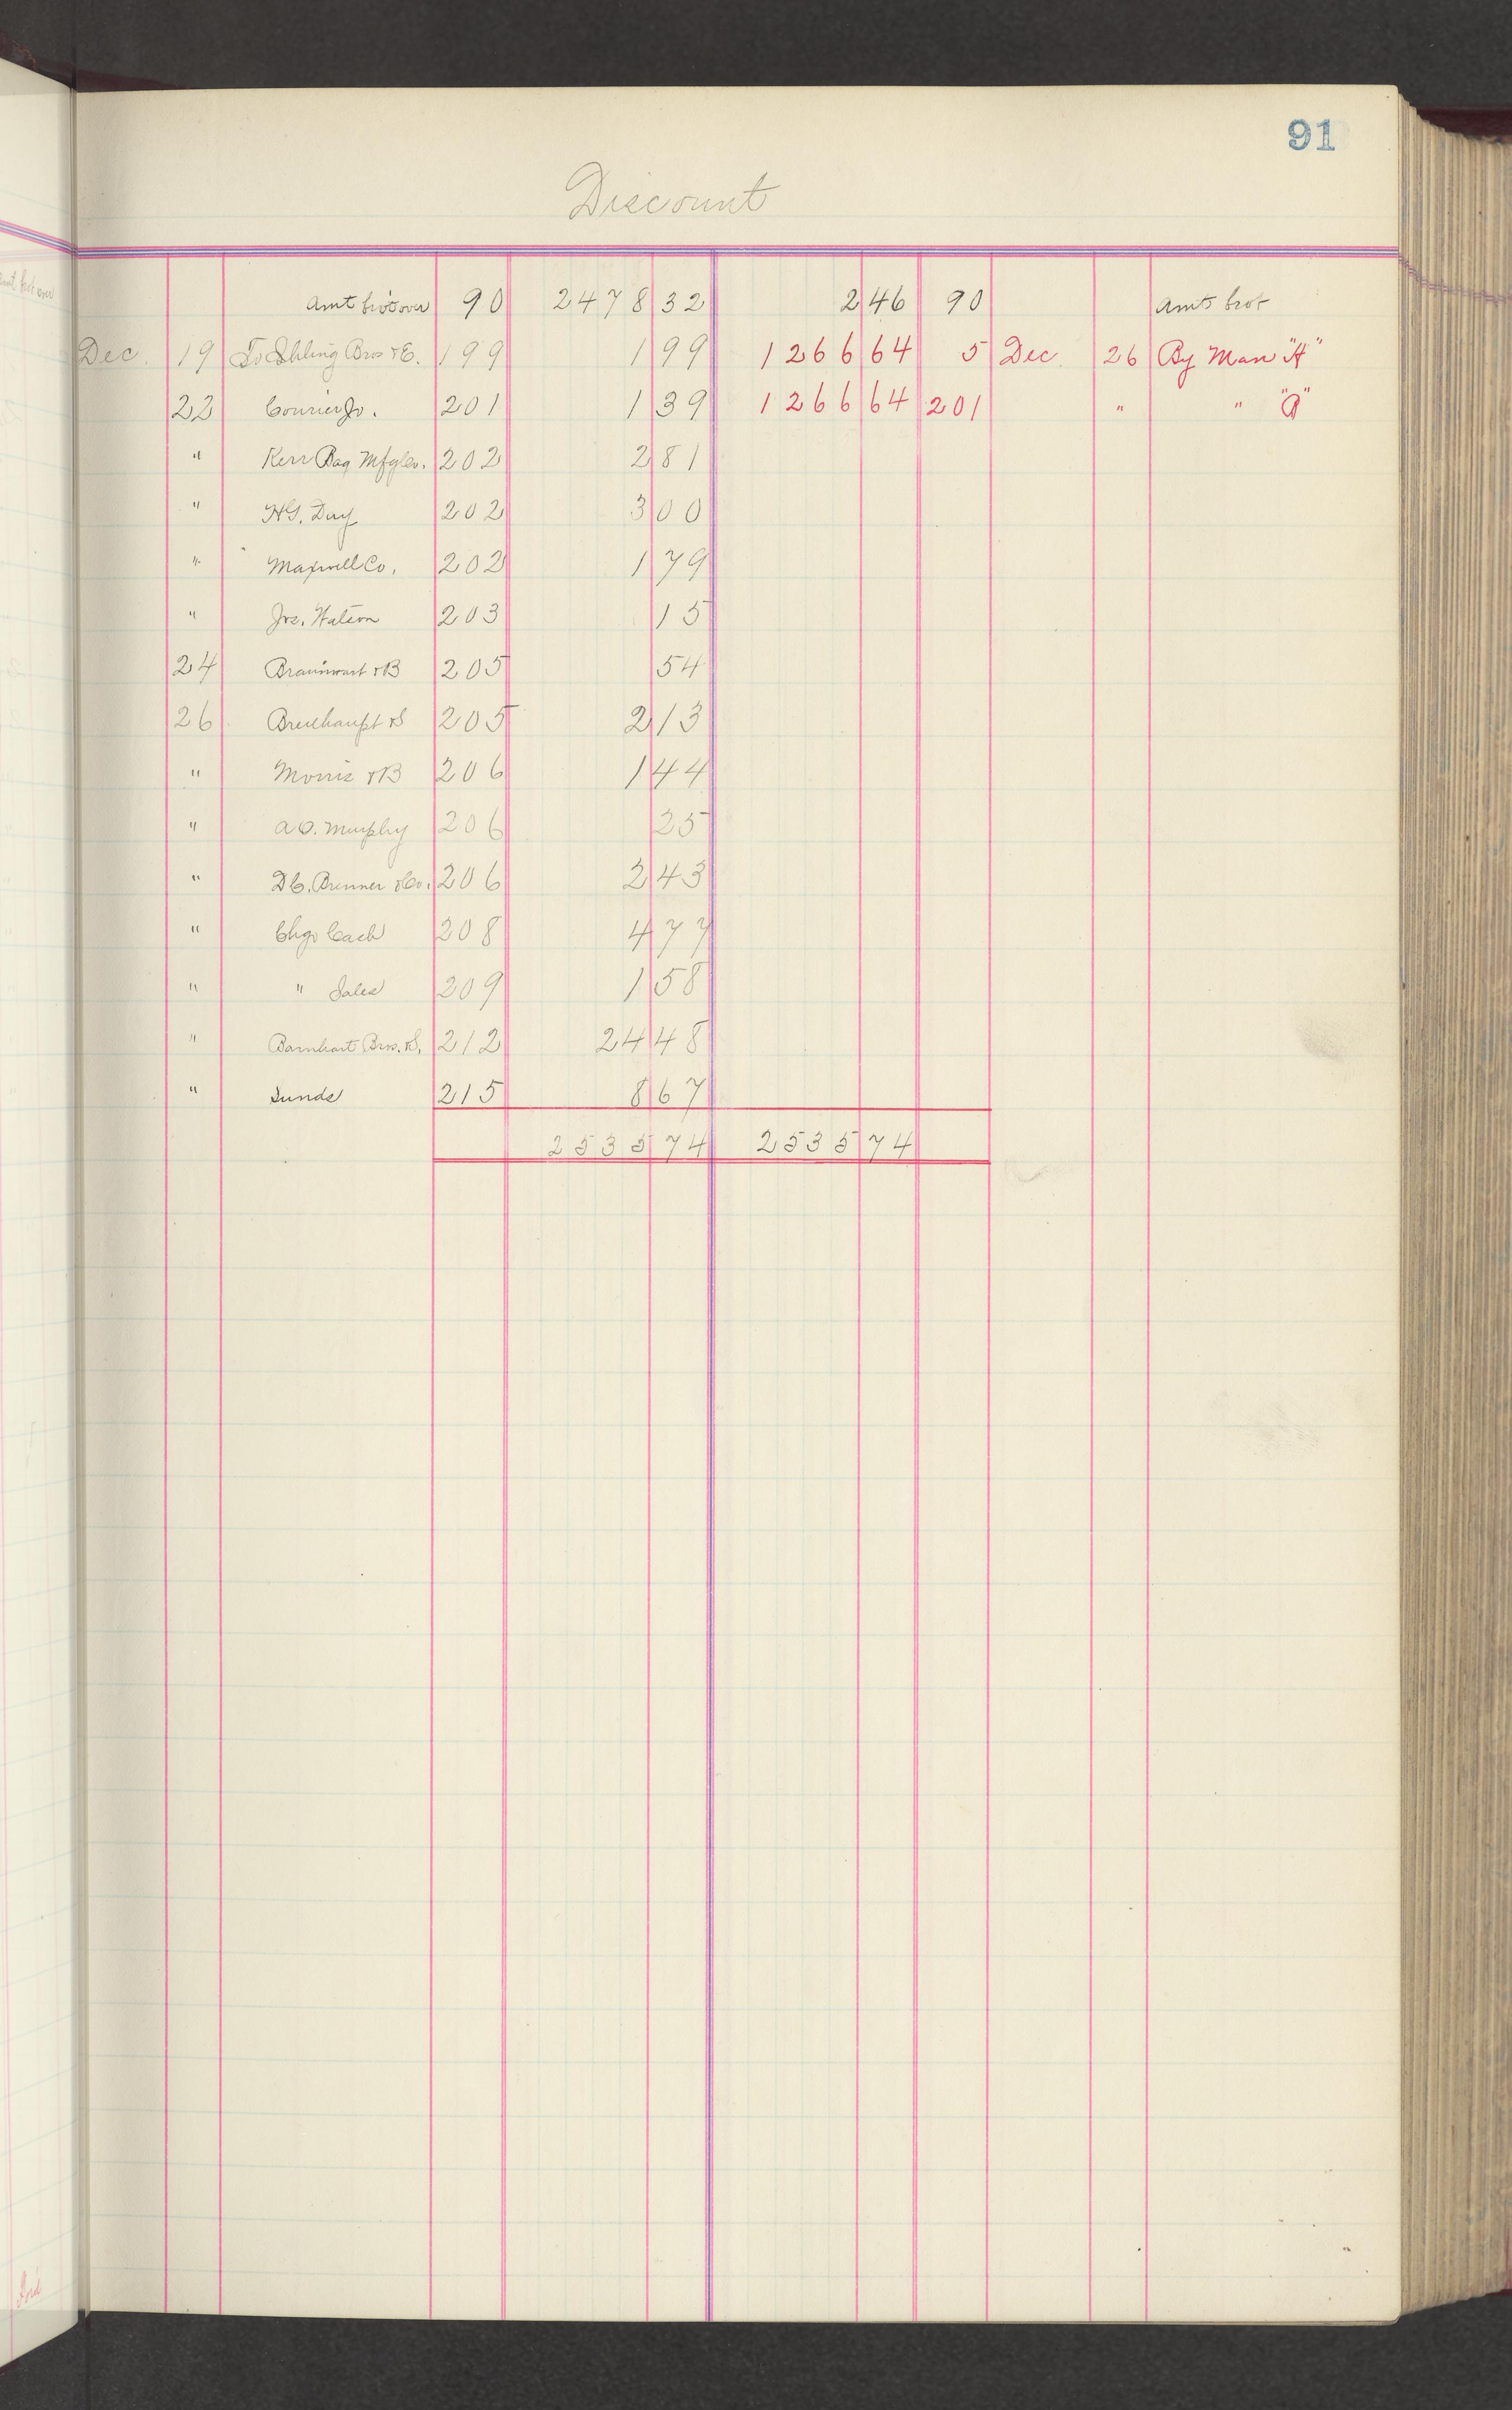 91
Discount
Amt bro't over 90 2478 32 2 46 90 Amts brot
Dec. 19 To Ihling Bros & E. 199 1 99 1266 64 5 Dec. 26 By Man "H"
22 Courier Jo. 201 1 39 1266 64 201 " " "A"
" Kerr Bag Mfg Co. 202 2 81
" H.G. Day 202 3 00
" Maxwell Co. 202 1 79
" Jos. Watson 203 15
24 Braunwart & B 205 54
26 Breuhaupt & S 205 2 13
" Morris & B 206 1 44
" A O. Murphy 206 25
" D C. Brenner & Co. 206 2 43
" Chgo Cash 208 4 77
" " Sales 209 1 58
" Barnhart Bros. & S. 212 24 48
" Sunds 215 8 67
2535 74 2535 74